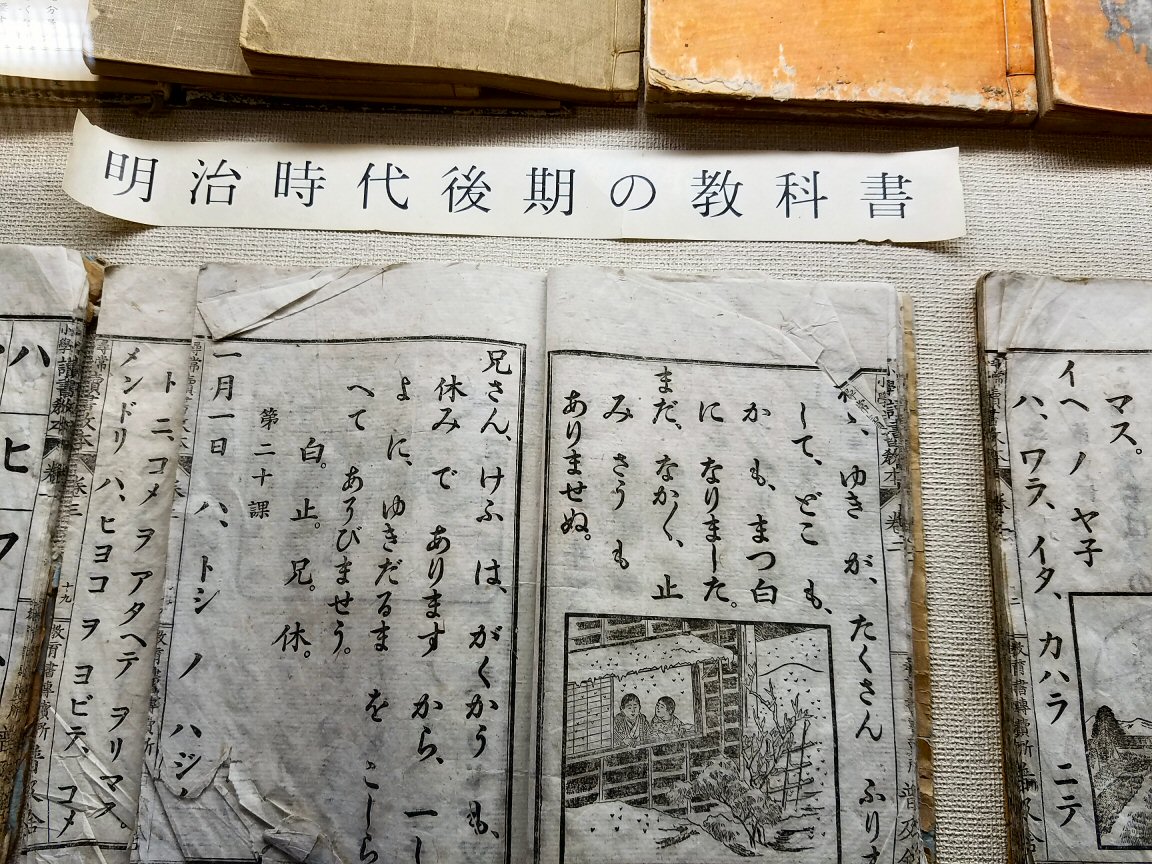 明治時代後期の教科書
マス。
イヘ ノ ヤ子
ハ、ワラ、イタ、カハラ ニテ
ゆき が、たくさん ふり
して、どこ も、
か も、まつ白
に なりました。
まだ、なか〱、止
み さう も
ありませぬ。
兄さん、けふ は、がくかう も、
休み で あります から、一し
よ に、ゆきだるま を こしら
へて あそびませう。
白。止。兄。休。
第二十課
一月一日 ハ、トシ ノ ハジ
ト ニ、コメ ヲ アタヘテ ヲリマス。
メンドリ ハ、ヒヨコ ヲ ヨビテ、コメ
十九
小學讀書教本 卷一
ハ ヒ フ